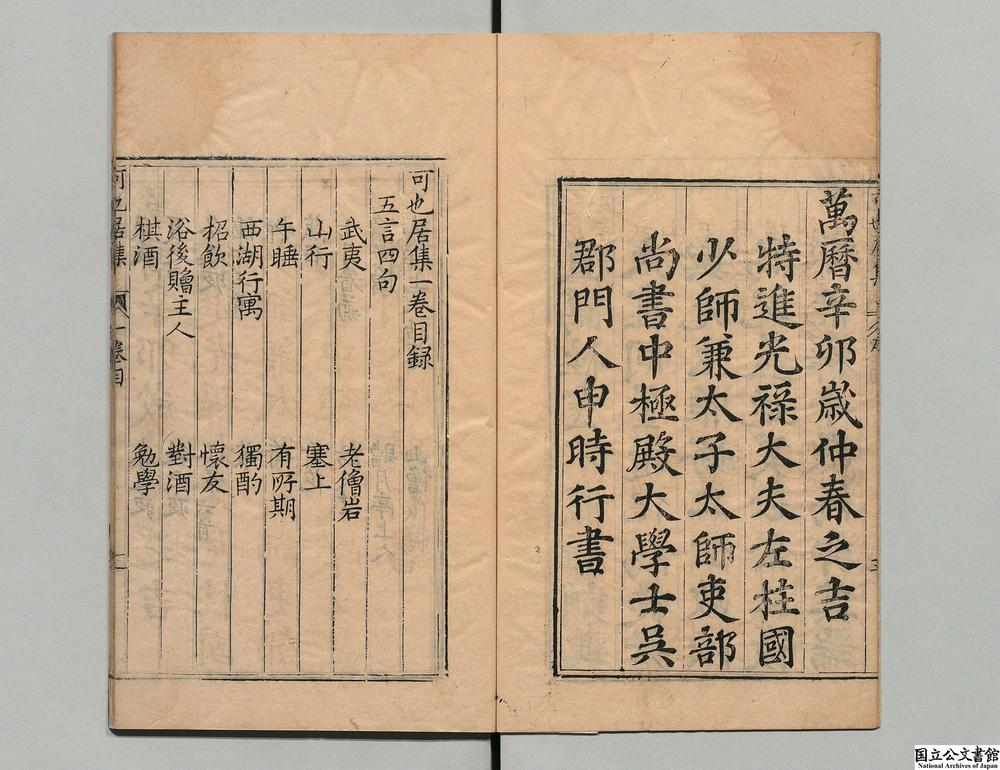 萬曆辛卯歲仲春之吉
特進光祿大夫左柱國
少師兼太子太師吏部
尚書中極殿大學士吳
郡門人申時行書
可也居集一卷目録
五言四句
武夷 老僧岩
山行 塞上
午睡 有所期
西湖行寓 獨酌
招飲 懷友
浴後贈主人 對酒
棋酒 勉學
可也居集 一卷目
国立公文書館
National Archives of Japan